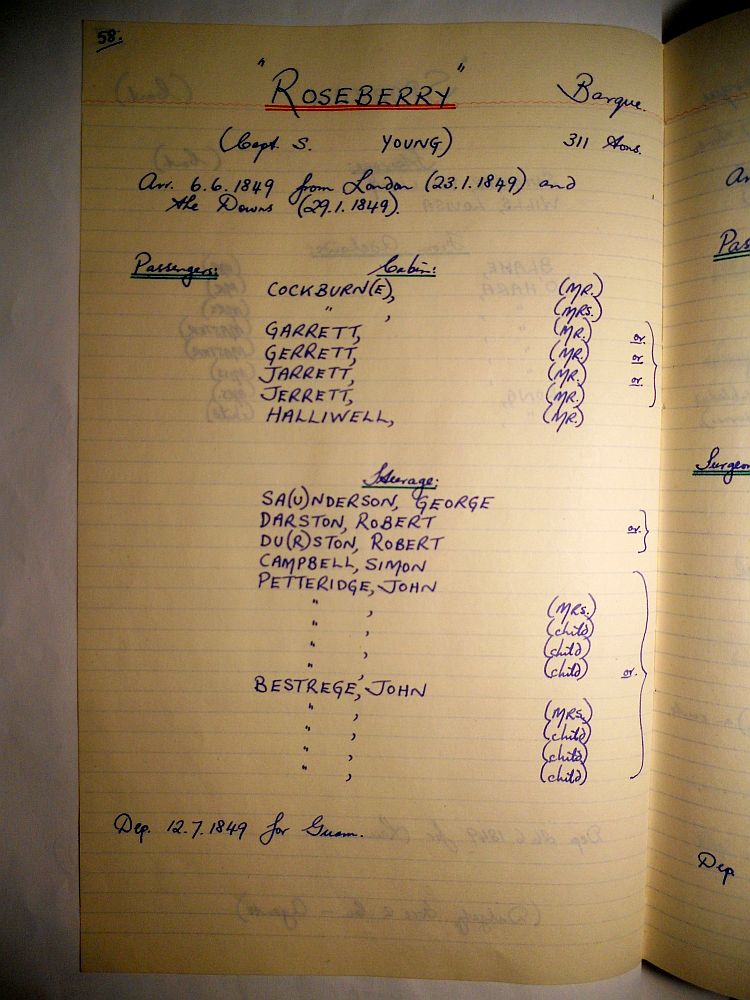 58.
"ROSEBERRY" Barque.
(Capt. S. YOUNG) 311 tons.
Arr. 6.6.1849 from London (23.1.1849) and
the Downs (29.1.1849).
Passengers: Cabin:
COCKBURN(E), (MR.)
" , (MRS.)
GARRETT, (MR.) or
GERRETT, (MR.) or
JARRETT, (MR.) or
JERRETT, (MR.)
HALLIWELL, (MR.)
Steerage:
SA(U)NDERSON, GEORGE
DARSTON, ROBERT or
DU(R)STON, ROBERT
CAMPBELL, SIMON
PETTERIDGE, JOHN
" , (MRS.)
" , (child)
" , (child)
" , (child) or
BESTREGE, JOHN
" , (MRS.)
" , (child)
" , (child)
" , (child)
Dep. 12.7.1849 for Guam.
Surgeon
Dep.